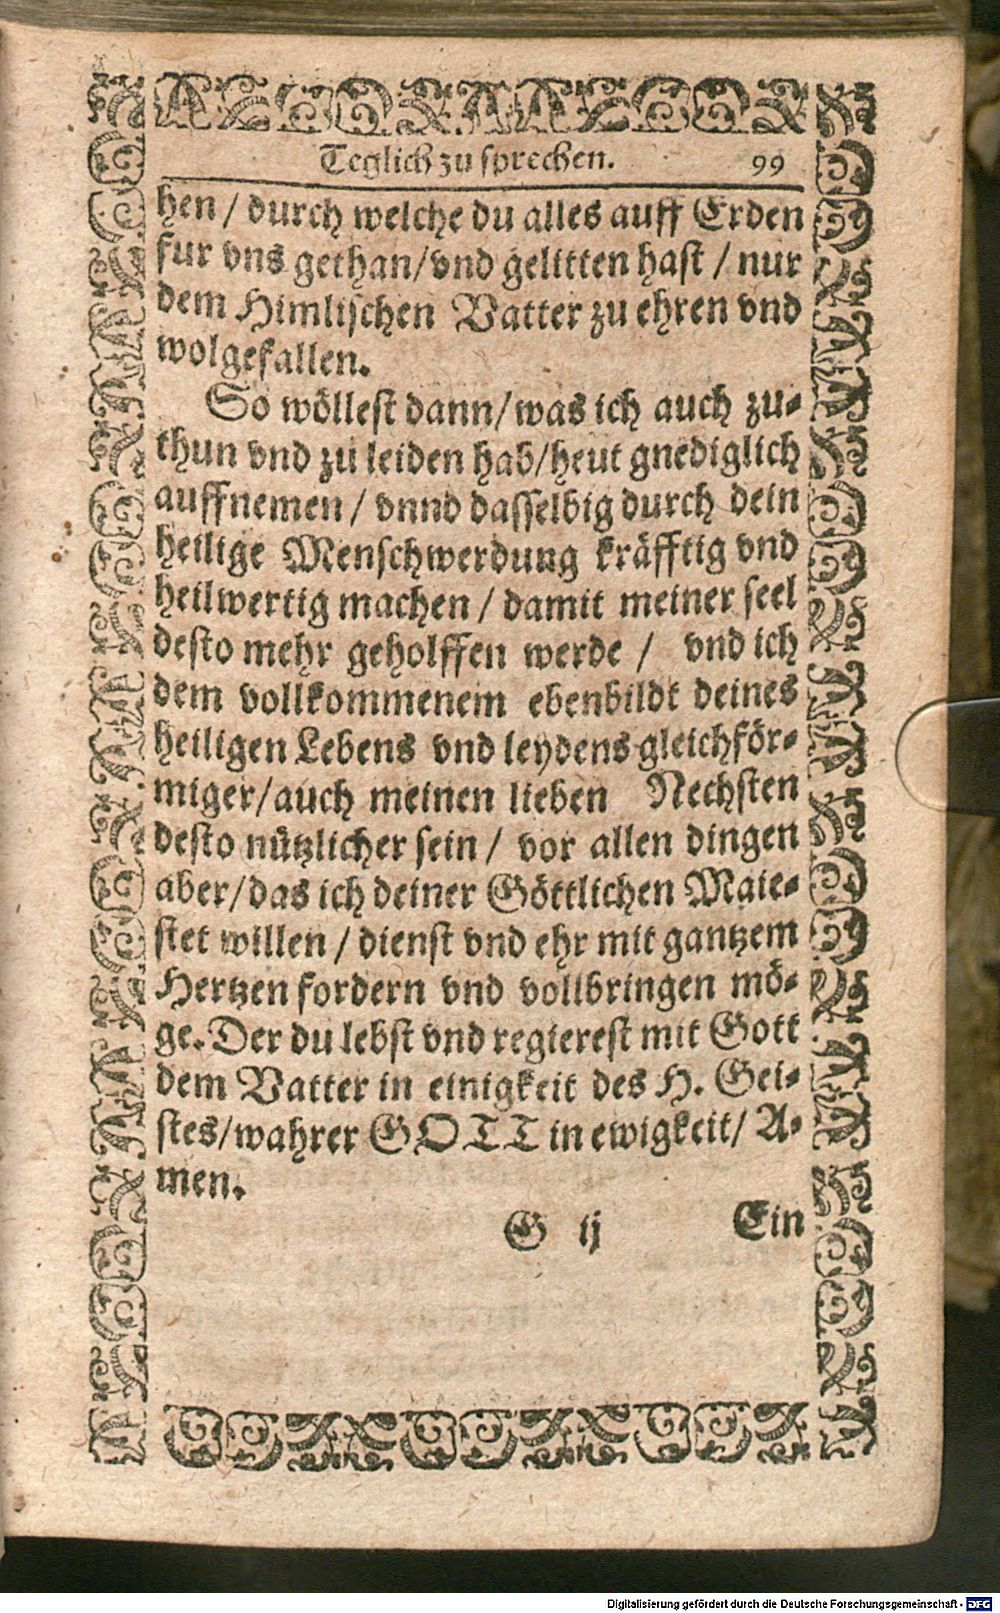 Teglich zu sprechen. 99
hen / durch welche du alles auff Erden
fur vns gethan/vnd gelitten hast / nur
dem Himlischen Vatter zu ehren vnd
wolgefallen.
So wöllest dann/was ich auch zu-
thun vnd zu leiden hab/heut gnediglich
auffnemen / vnnd dasselbig durch dein
heilige Menschwerdung kräfftig vnd
heilwertig machen / damit meiner seel
desto mehr geholffen werde / vnd ich
dem vollkommenem ebenbildt deines
heiligen Lebens vnd leydens gleichför-
miger/auch meinen lieben Nechsten
desto nützlicher sein / vor allen dingen
aber/das ich deiner Göttlichen Maie-
stet willen / dienst vnd ehr mit gantzem
Hertzen fordern vnd vollbringen mö-
ge. Der du lebst vnd regierest mit Gott
dem Vatter in einigkeit des H. Gei-
stes/wahrer GOTT in ewigkeit/ A-
men.
G ij Ein
Digitalisierung gefördert durch die Deutsche Forschungsgemeinschaft - DFG